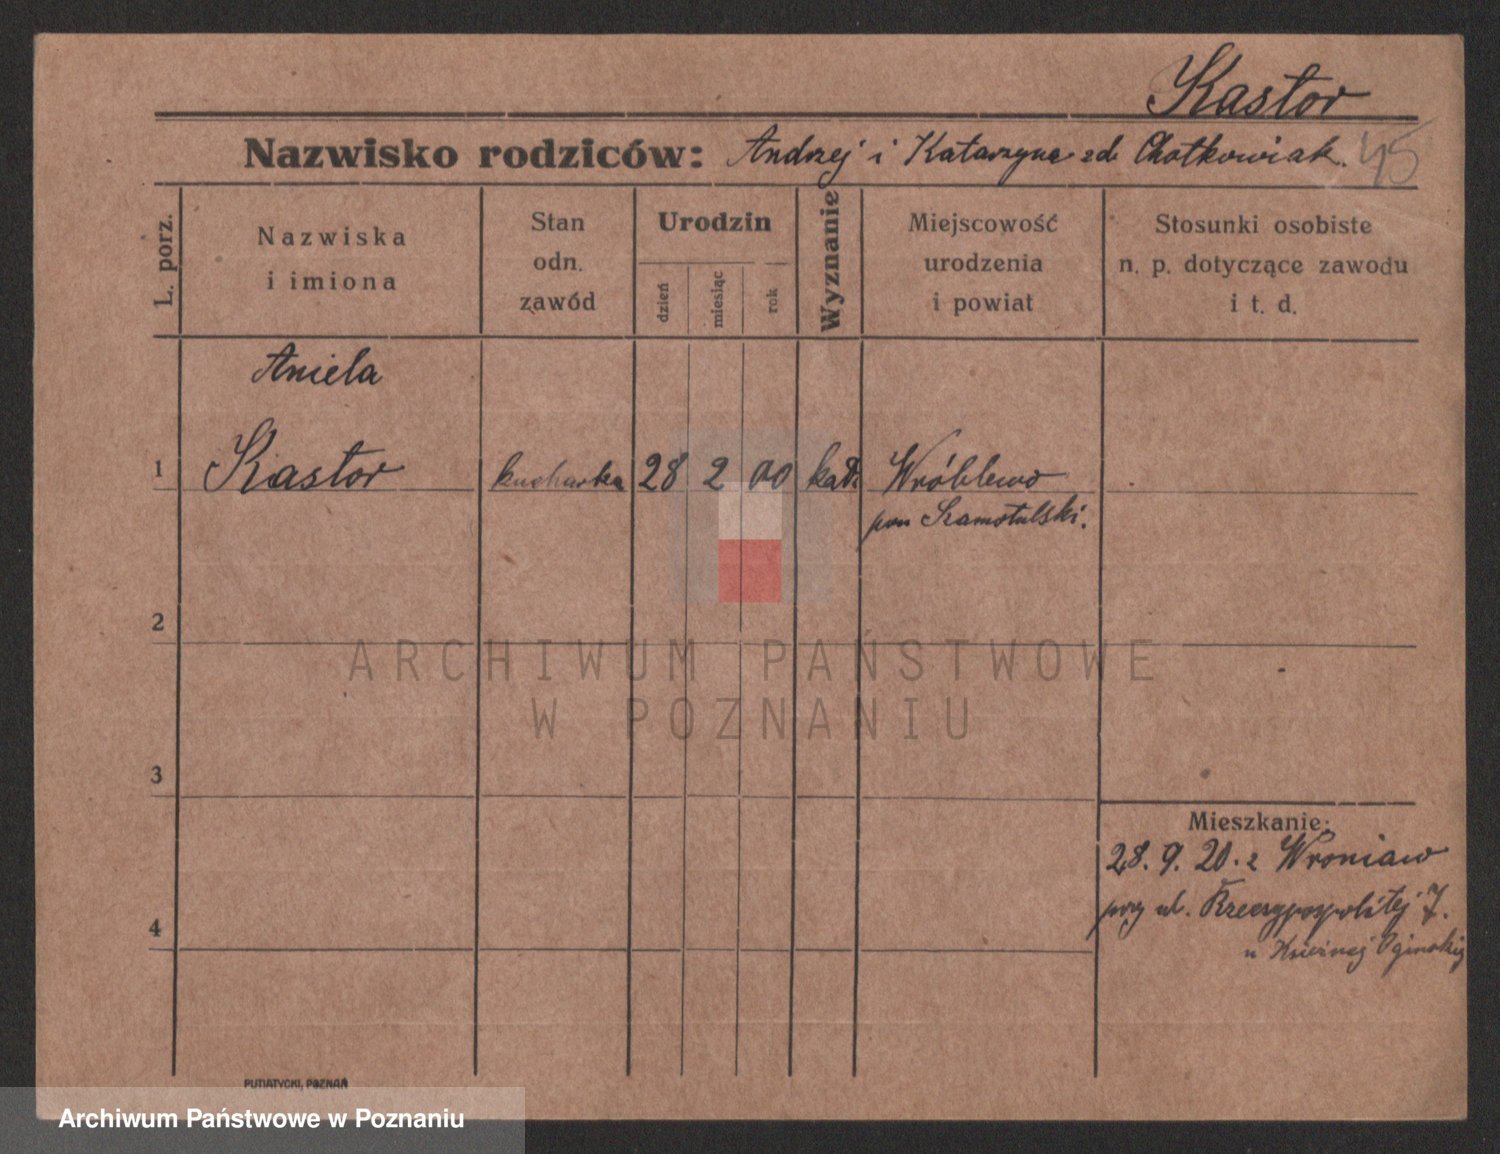 Kastor
Nazwisko rodziców: Andrzej i Katarzyna zd. Chotkowiak. 45
L. porz.
Nazwiska
i imiona
Stan
odn.
zawód
Urodzin
dzień
miesiąc
rok
Wyznanie
Miejscowość
urodzenia
i powiat
Stosunki osobiste
n. p. dotyczące zawodu
i t. d.
Aniela
1 Kastor kucharka 28 2 00 kat. Wróblewo
pow Szamotulski.
2
ARCHIWUM PAŃSTWOWE
W POZNANIU
3
Mieszkanie:
28. 9. 20. z Wroniaw
przy ul. Rzeczypospolitej 7.
4
u Księżnej Ogińskiej
PUTIATYCKI, POZNAŃ
Archiwum Państwowe w Poznaniu